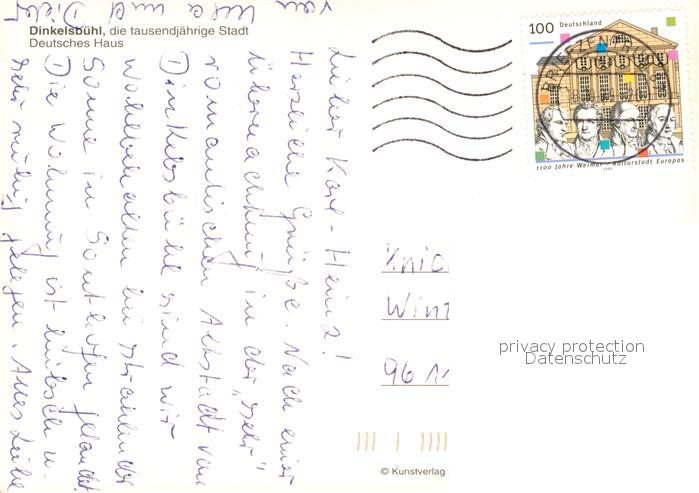 Dinkelsbühl, die tausendjährige Stadt
Deutsches Haus
Lieber Karl-Heinz!
Herzliche Grüße. Nach einer
Übernachtung in der „sehr"
romantischen Altstadt von
Dinkelsbühl sind wir
wohlbehalten bei strahlender
Sonne in Sonthofen gelandet
Die Wohnung ist hübsch u.
sehr ruhig gelegen. Alles Liebe
von und Dieter
100 Deutschland
1100 Jahre Weimar - Kulturstadt Europas
1999
BRIEFZENTRUM
Knic
Win
96
privacy protection
Datenschutz
© Kunstverlag